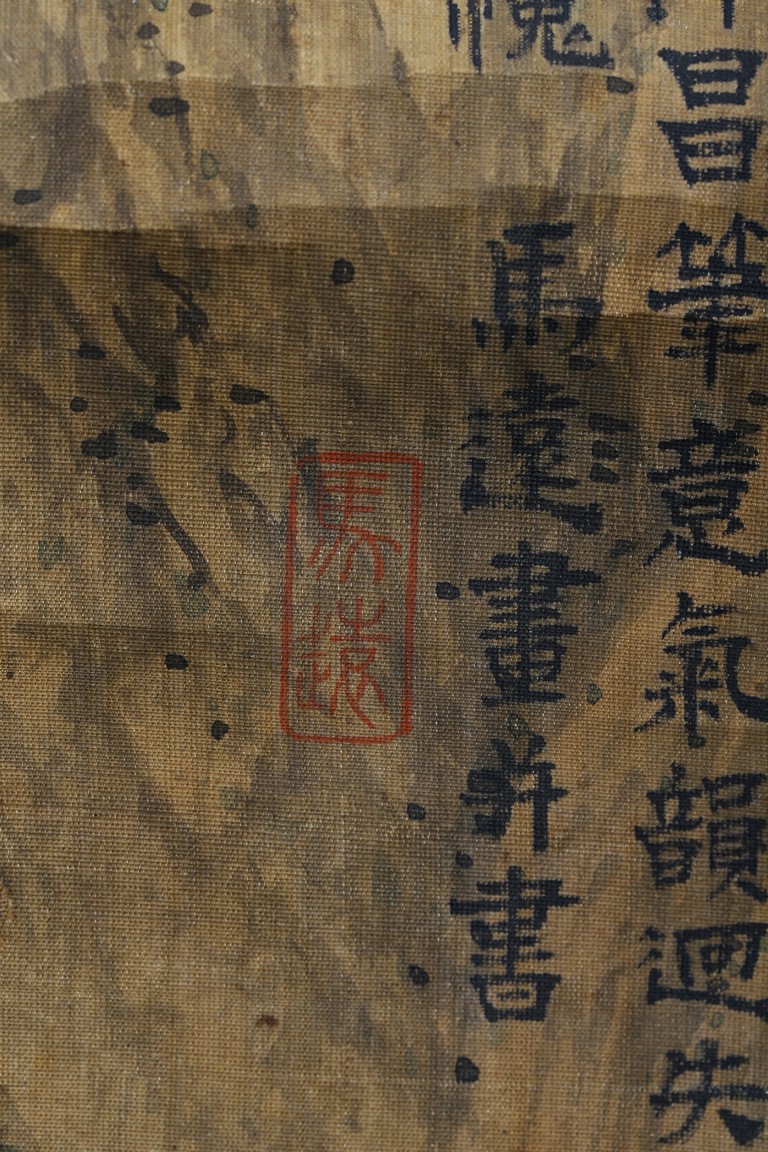 昌筆意氣韻迴失
愧
馬遠畫并書
馬遠